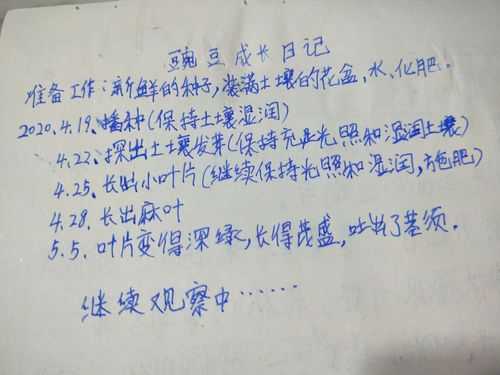 豌豆成长日记
准备工作：新鲜的种子，装满土壤的花盆、水、化肥.
2020.4.19、播种(保持土壤湿润)
4.22、探出土壤发芽(保持充足光照和湿润土壤)
4.25、长出小叶片(继续保持光照和湿润，施肥)
4.28、长出麻叶
5.5、叶片变得深绿，长得茂盛，吐出了茎须.
继续观察中……